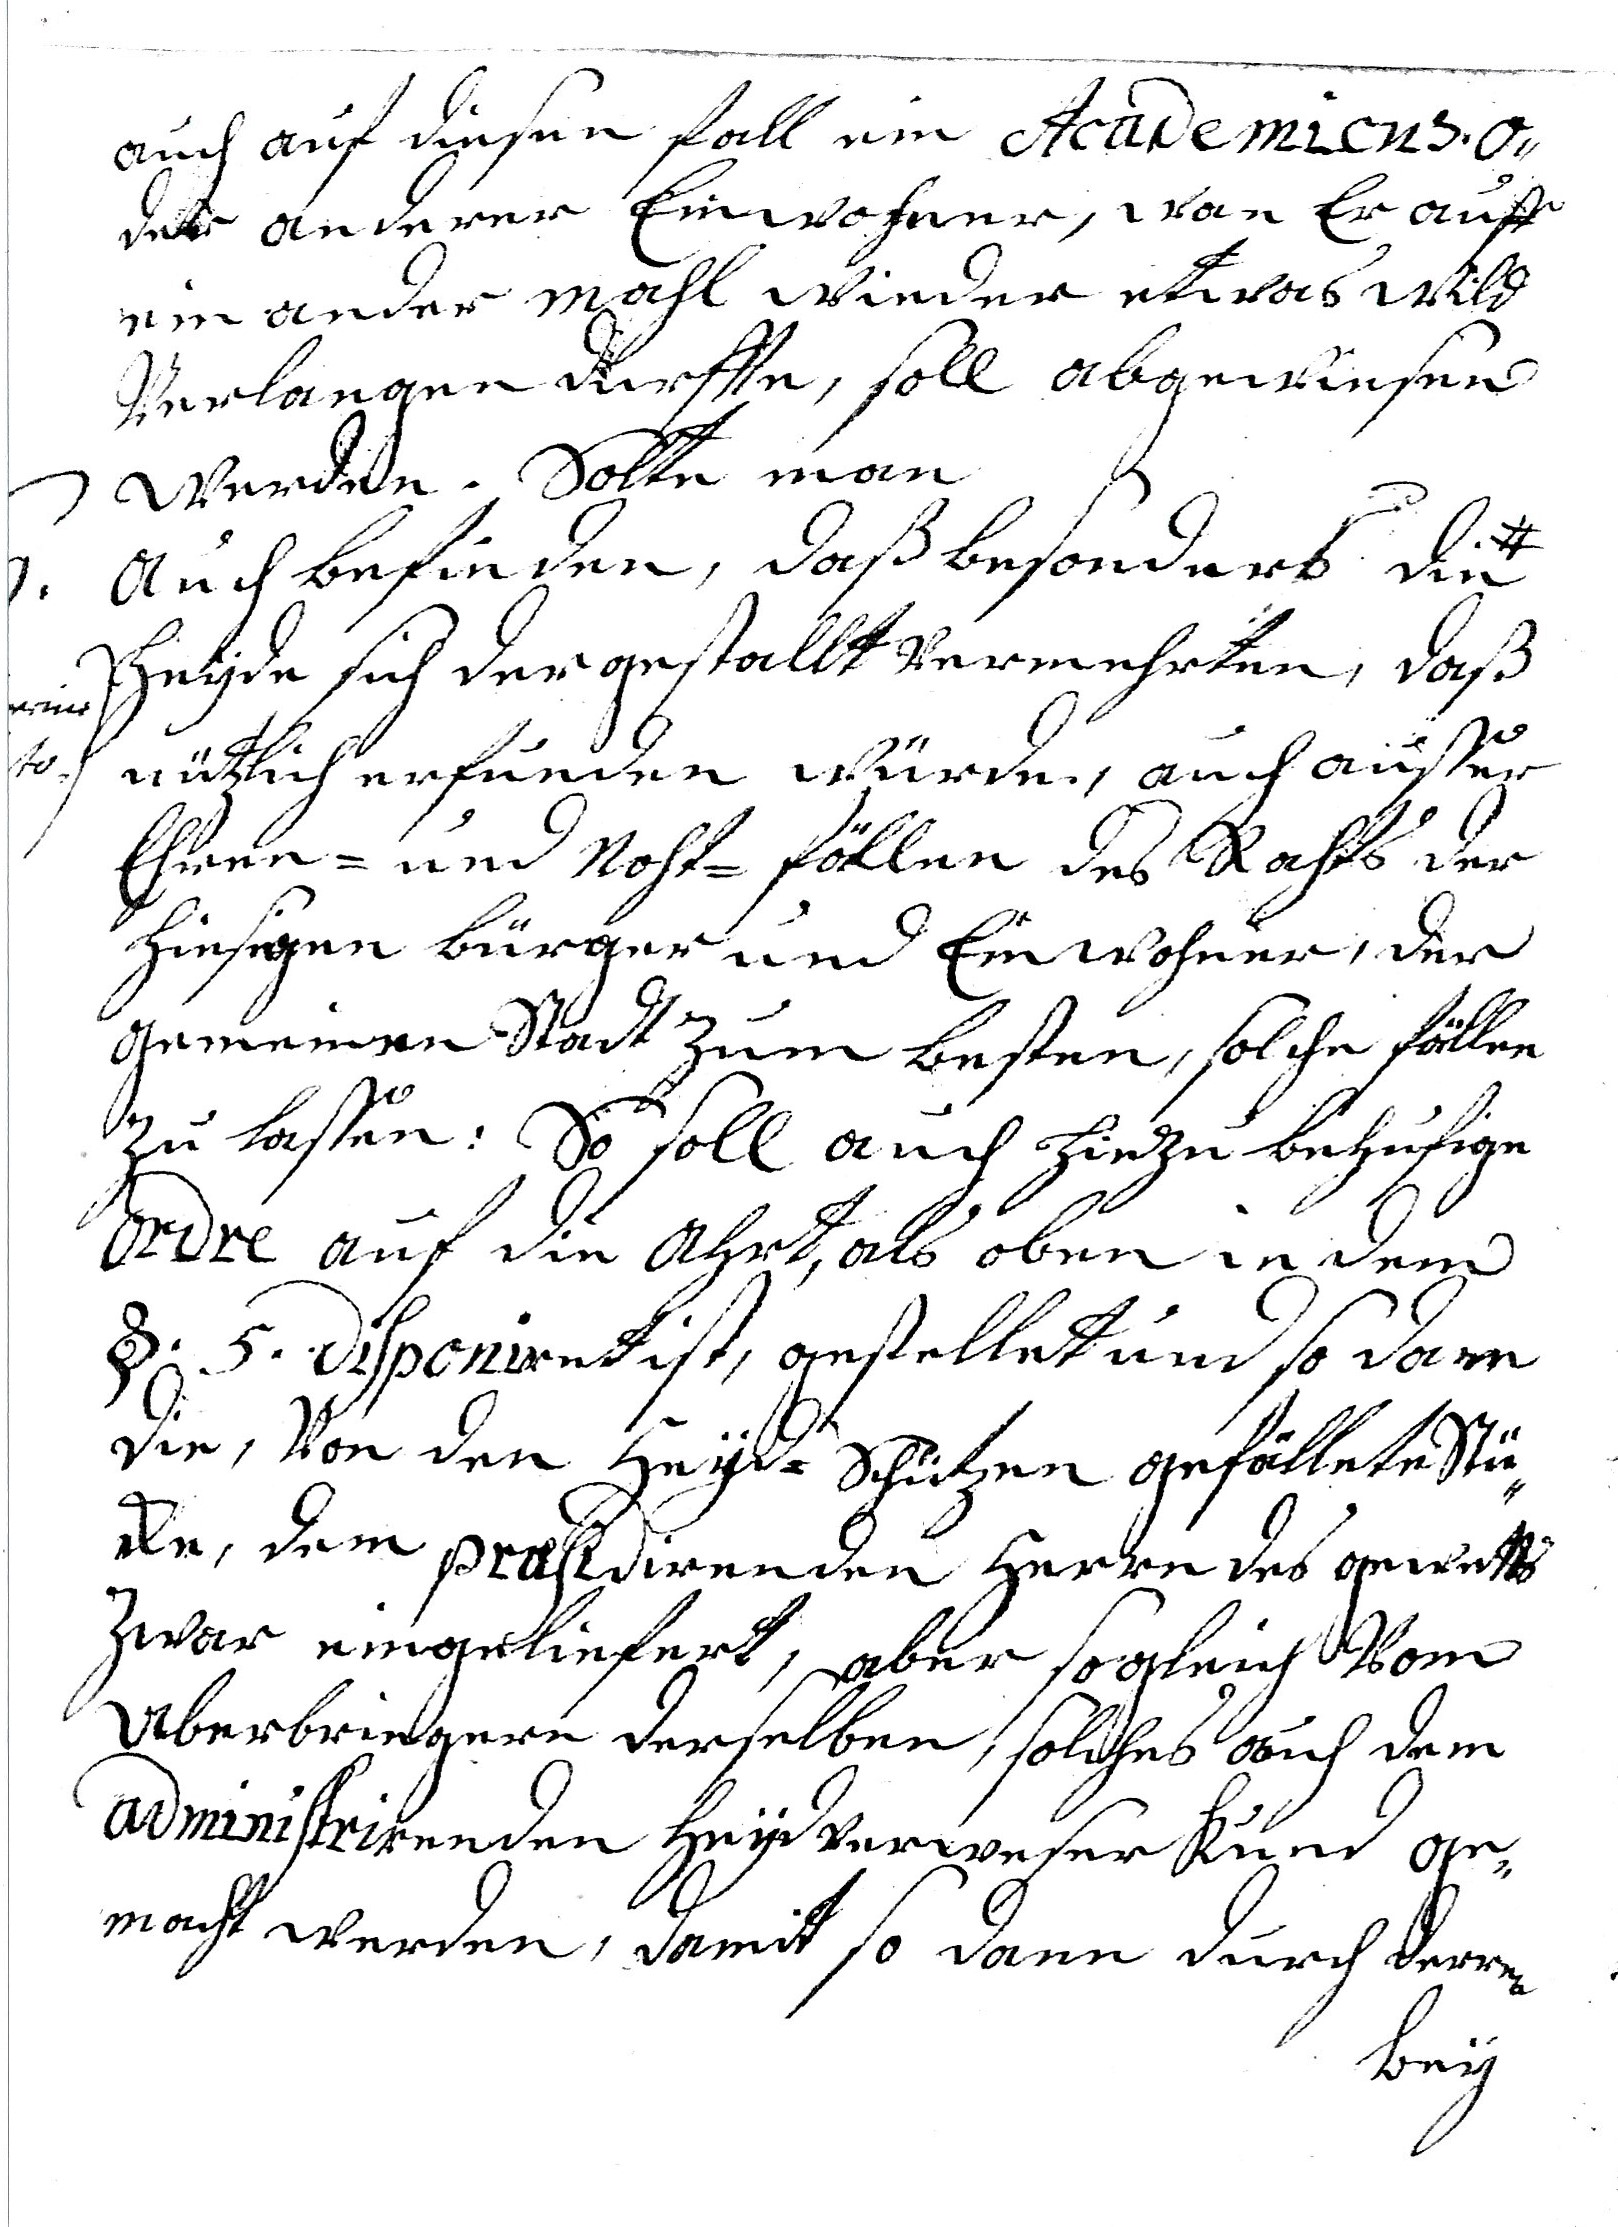 auch auf diesen fall ein Academicus. o„
der anderer Einwohner, wan Er auffs
ein ander mahl wieder etwas Wild
Verlangen dürffte, soll abgewiesen
werden. Solte man
auch befinden, daß besonders die #
Heyde sich dergestallt vermehrten, daß
nützlich erfunden würde, auch ausser
Ehren= und Noht= fällen des Rahts der
hiesigen bürger und Einwohner, der
gemeinen Stadt zum besten, solche fällen
zu lassen: So soll auch hiezu behufige
Ordre auf die Ahrt, als oben in dem
§. 5. disponiret ist, gestellet und so dann
die, Von den Heyd= Schützen gefällete Stü„
cke, dem præsidirenden Herrn des gewetts
zwar eingeliefert, aber sogleich Vom
Uberbringern derselben, solches auch dem
administrirenden Heydverweser Kund ge„
macht werden, damit so dann durch deren
bey